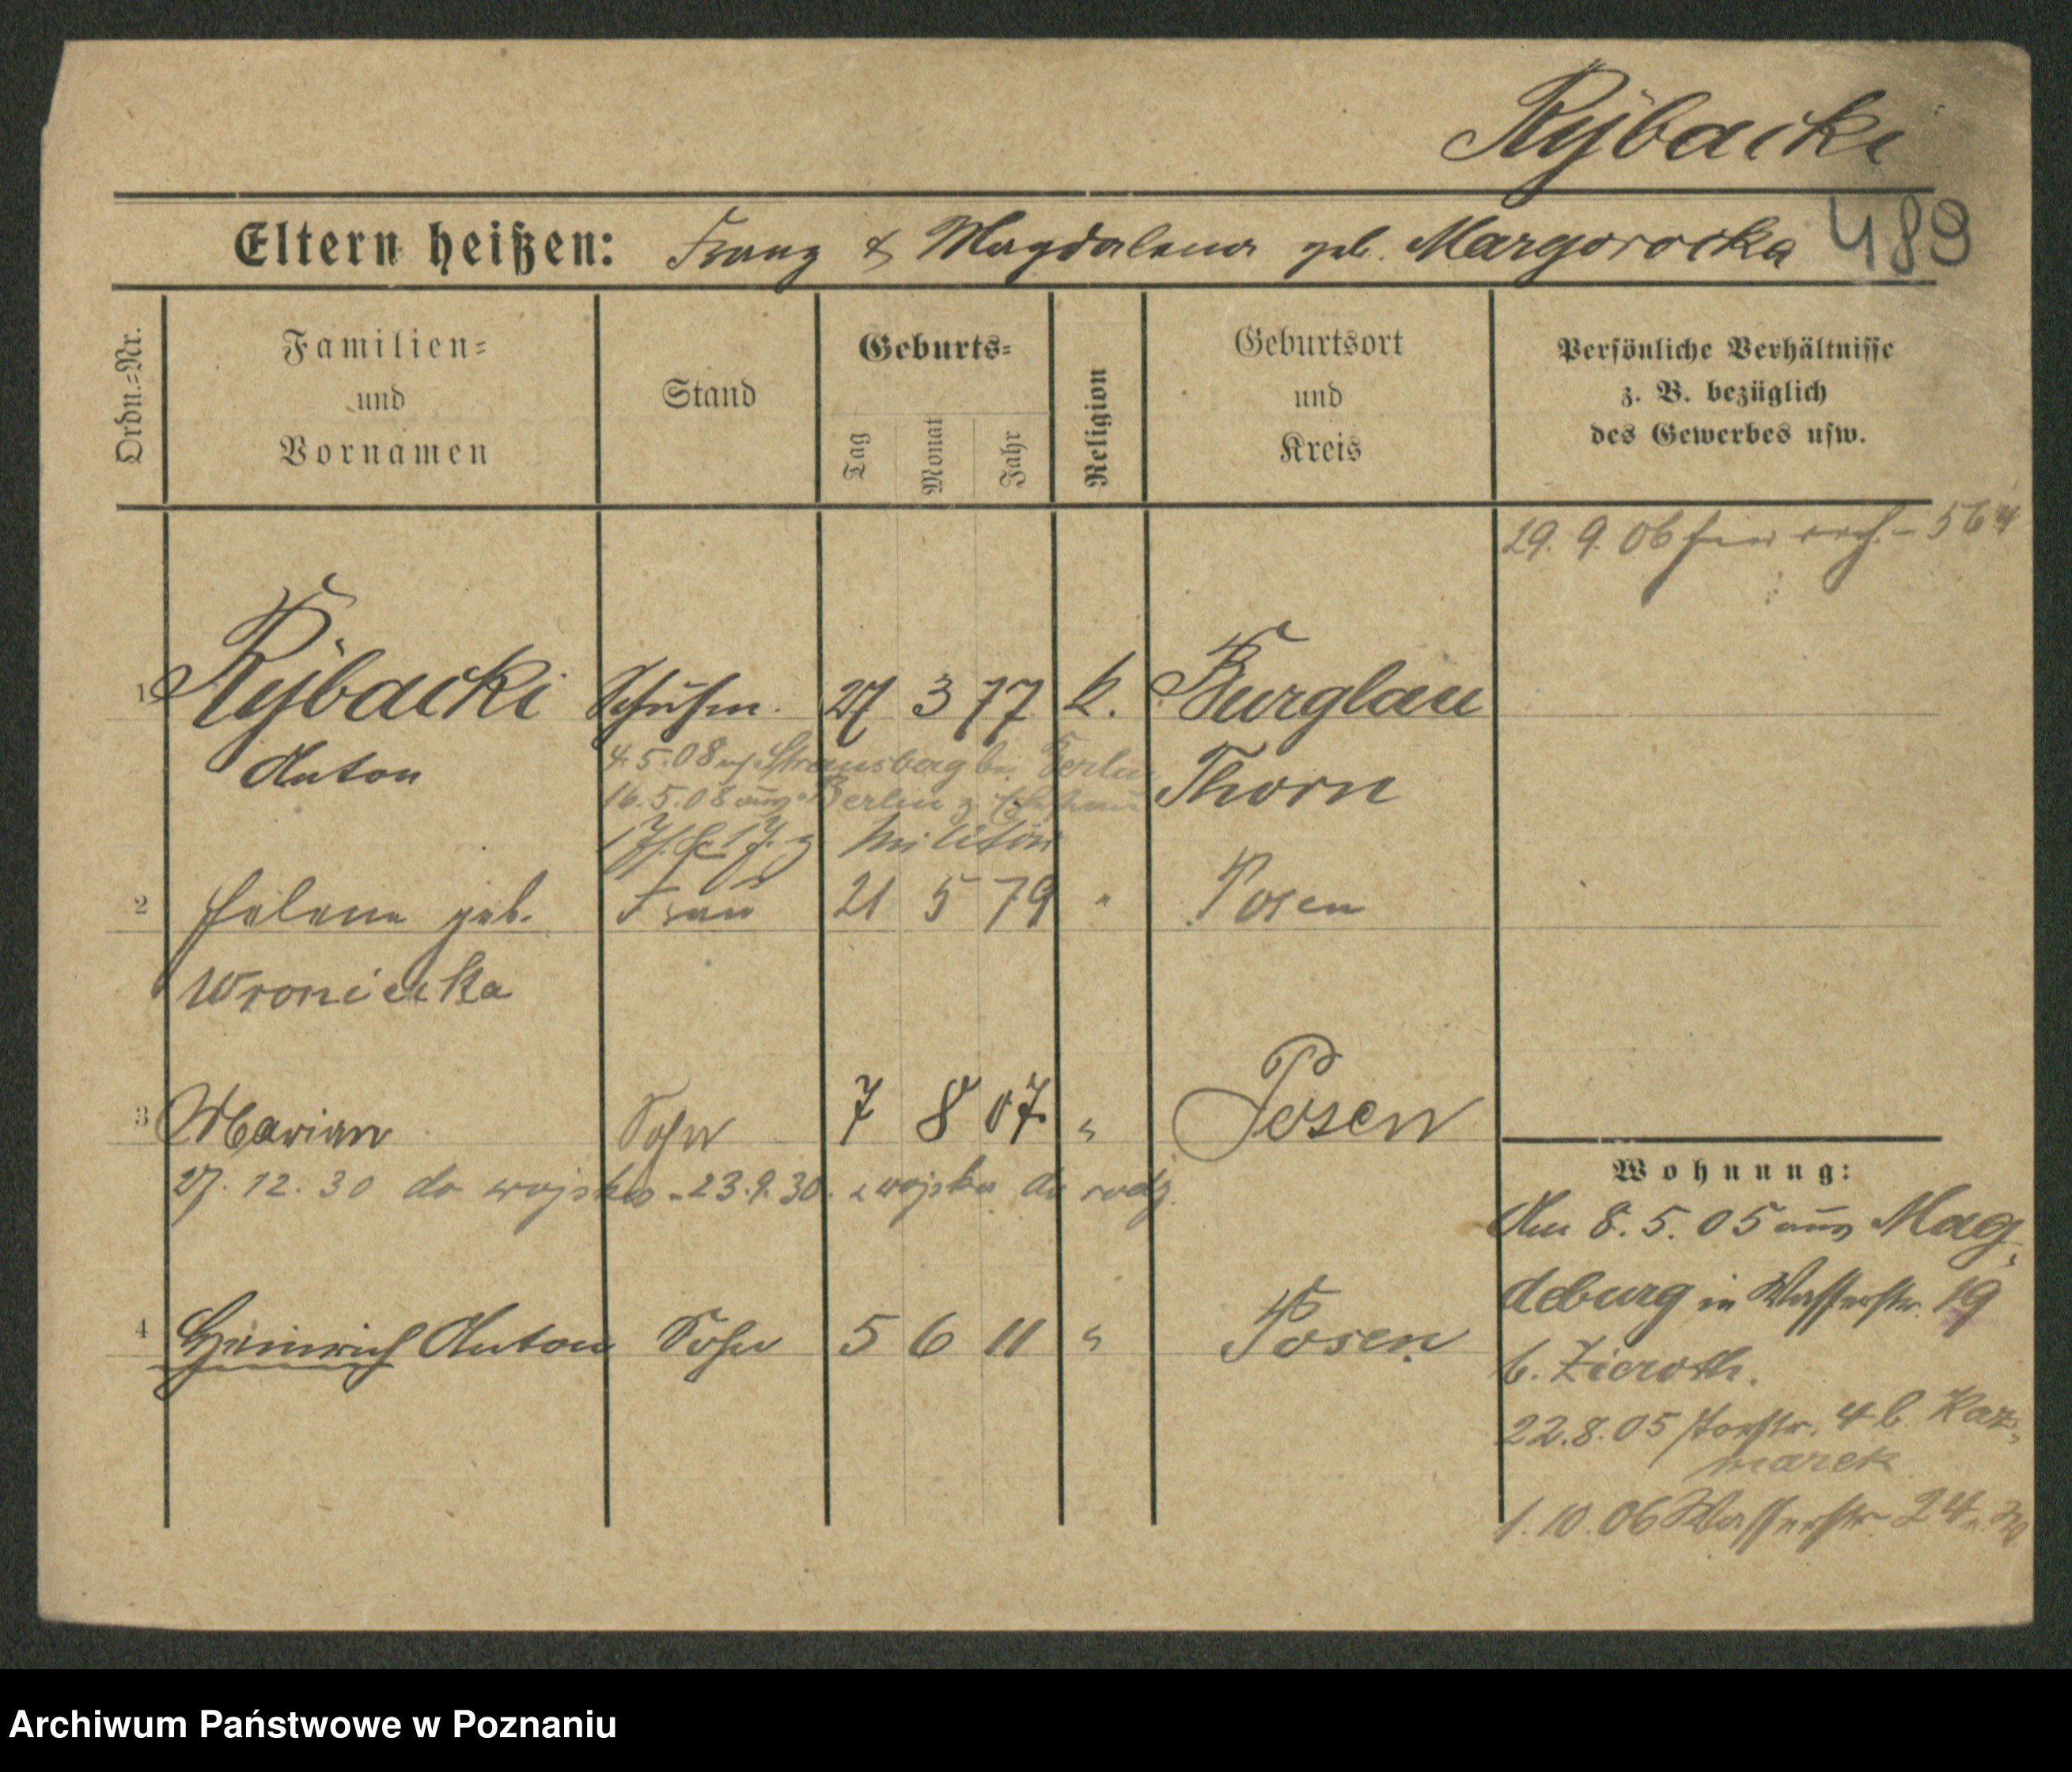 Rÿbacki
Eltern heißen: Franz & Magdalena geb. Margorocka 489
Ordn.=Nr.
Familien=
und
Vornamen
Stand
Geburts=
Tag
Monat
Jahr
Religion
Geburtsort
und
Kreis
Persönliche Verhältnisse
z. B. bezüglich
des Gewerbes usw.
29. 9. 06 564
1 Rÿbacki Schuhm. 27 3 77 k. Burglau
Anton Thorn
4.5.08 Strausberg b. Berlin
16.5.08 aus Berlin z. Ehefrau
z Militär
2 Helene geb. Frau 21 5 79 " Posen
Wroniecka
3 Marian Sohn 7 8 07 " Posen
27. 12. 30 do wojska - 23.9.30. z wojska do rodz.
4 Heinrich Anton Sohn 5 6 11 " Posen
Wohnung:
Am 8. 5. 05 aus Mag
deburg in Wasserstr. 19
b. Zieroth.
22.8.05 4 b. Kaz
marek
1. 10. 06 Wasserstr. 24
Archiwum Państwowe w Poznaniu